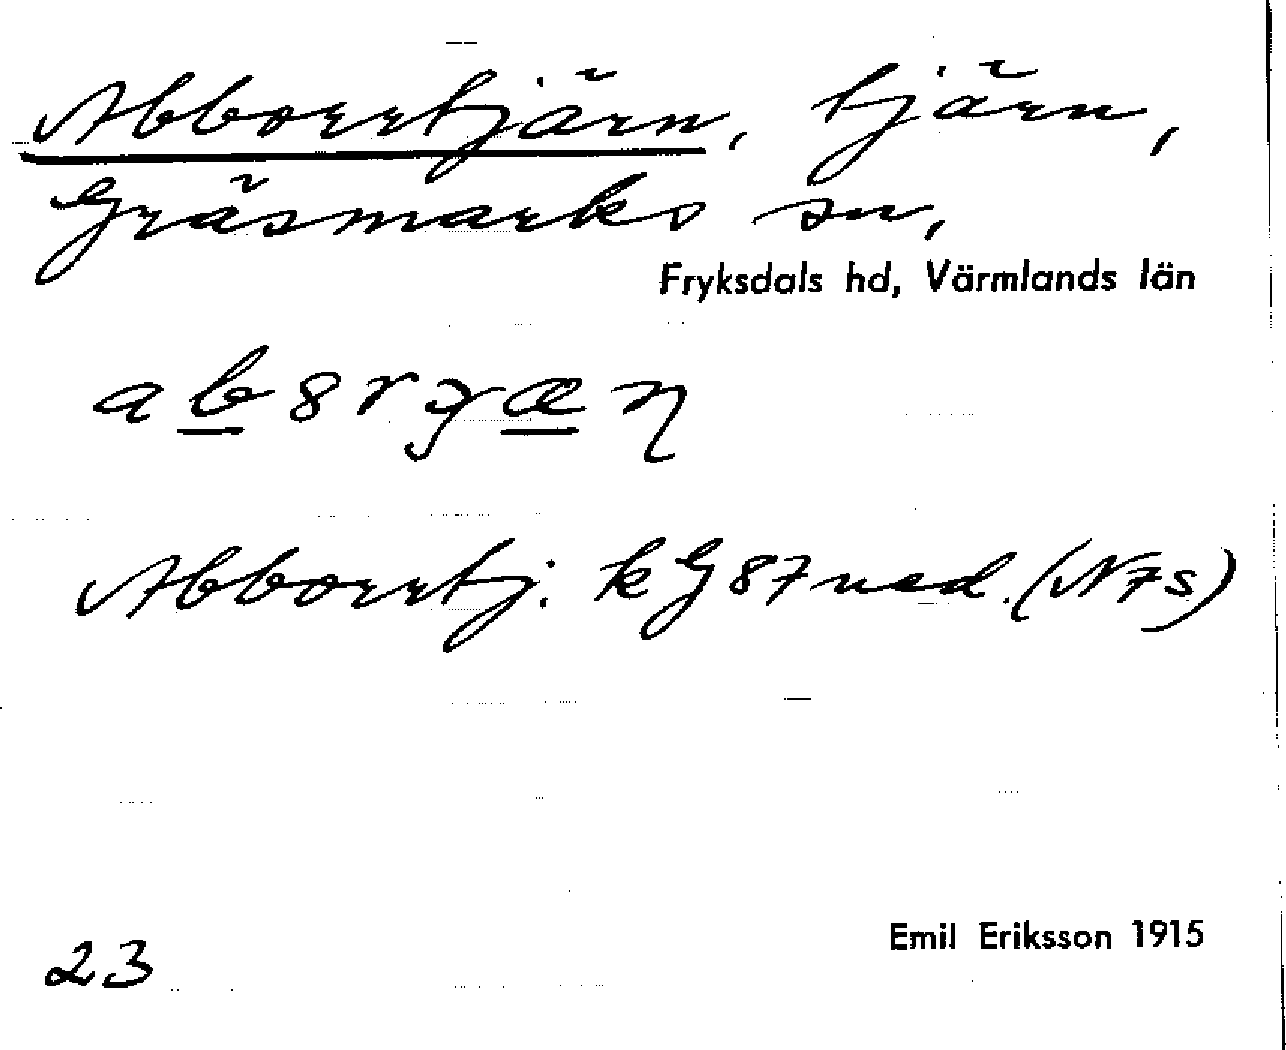 Abborrtjärn, tjärn,
Gräsmarks sn,
Fryksdals hd, Värmlands län
Abborrtj. k G 87 ned. (N 7 s)
23
Emil Eriksson 1915